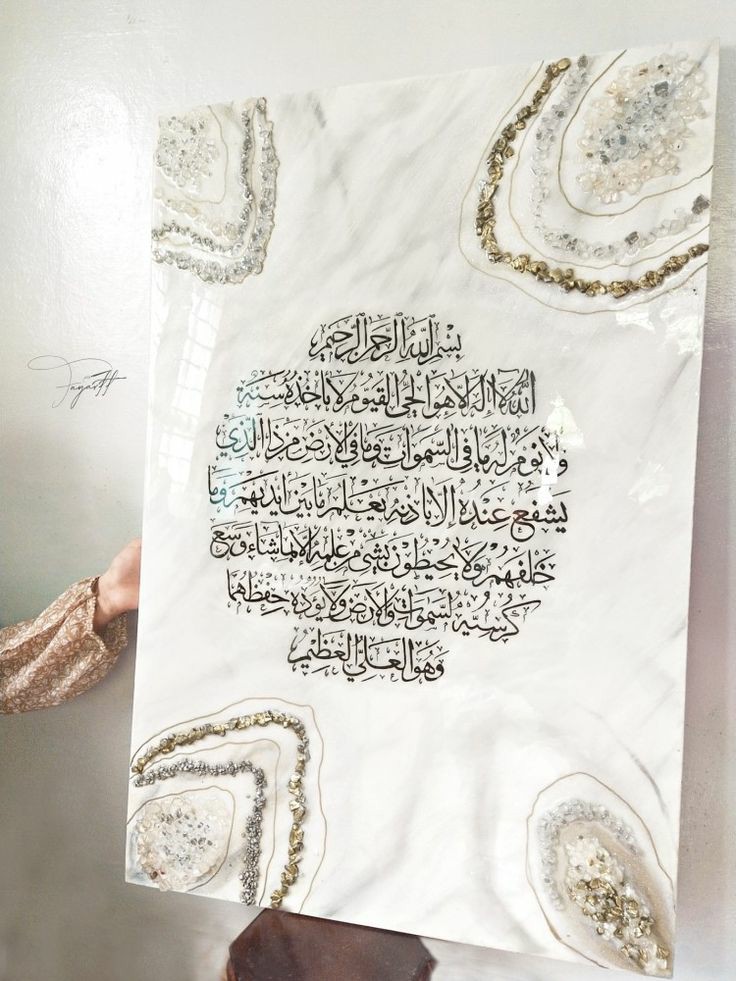 بِسْمِ اللهِ الرَّحْمٰنِ الرَّحِيْمِ
اَللهُ لَا اِلٰهَ اِلَّا هُوَ الْحَيُّ الْقَيُّوْمُ لَا تَأْخُذُهٗ سِنَةٌ
وَّلَا نَوْمٌ لَهٗ مَا فِي السَّمٰوَاتِ وَمَا فِي الْاَرْضِ مَنْ ذَا الَّذِيْ
يَشْفَعُ عِنْدَهٗ اِلَّا بِاِذْنِهٖ يَعْلَمُ مَا بَيْنَ اَيْدِيْهِمْ وَمَا
خَلْفَهُمْ وَلَا يُحِيْطُوْنَ بِشَيْءٍ مِّنْ عِلْمِهٖ اِلَّا بِمَا شَاءَ وَسِعَ
كُرْسِيُّهُ السَّمٰوَاتِ وَالْاَرْضَ وَلَا يَئُوْدُهٗ حِفْظُهُمَا
وَهُوَ الْعَلِيُّ الْعَظِيْمُ